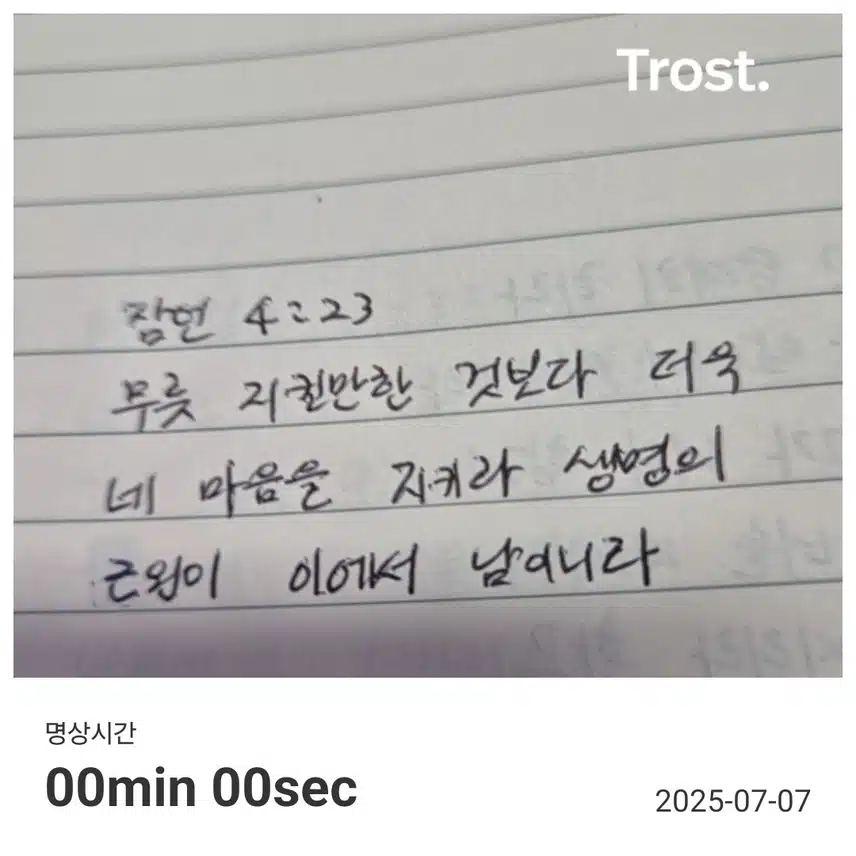 Trost.
잠언 4:23
무릇 지킬만한 것보다 더욱
네 마음을 지키라 생명의
근원이 이에서 남이니라
명상시간
00min 00sec
2025-07-07